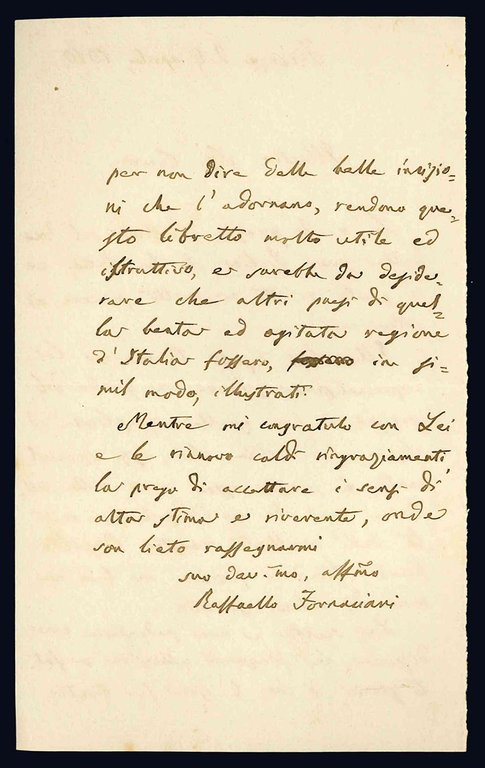 per non dire delle belle incisio=
ni che l'adornano, rendono que=
sto libretto molto utile ed
istruttivo, e sarebbe da deside=
rare che altri paesi di quel=
la beata ed agitata regione
d'Italia fossero, in si=
mil modo, illustrati.
Mentre mi congratulo con Lei
e le rinnovo caldi ringraziamenti,
la prego di accettare i sensi di
alta stima e riverente, onde
son lieto rassegnarmi
suo dev.mo, affmo
Raffaello Fornaciari